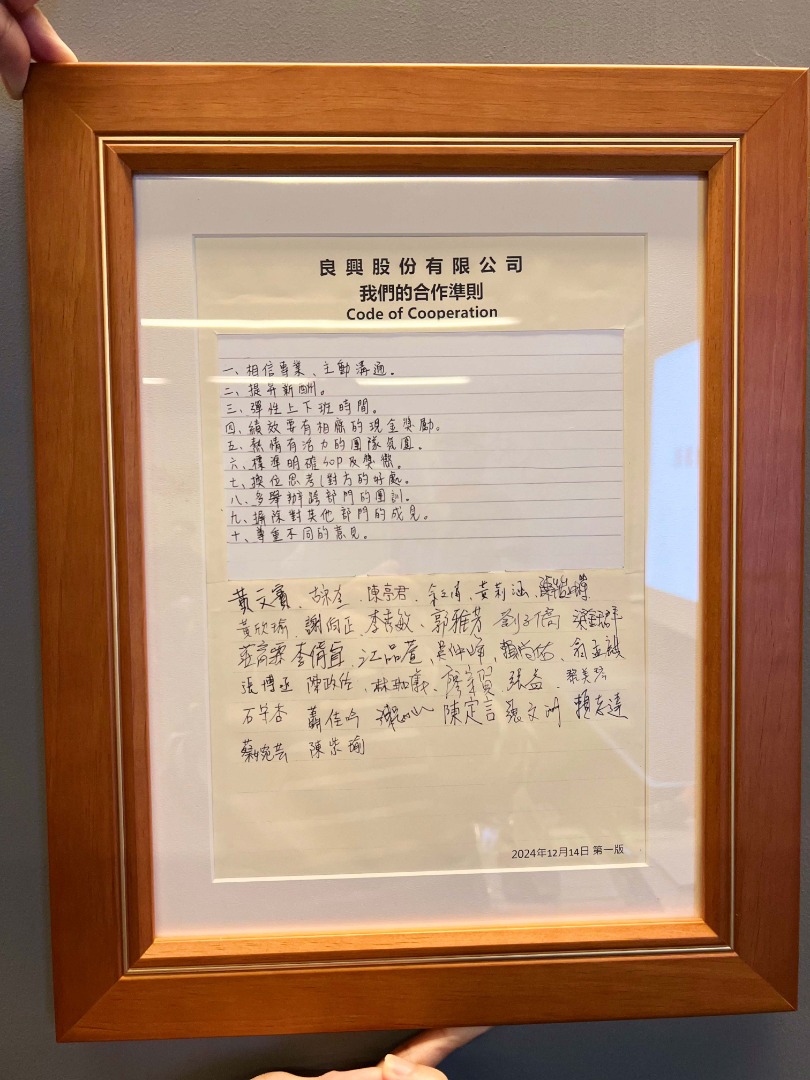 良興股份有限公司
我們的合作準則
Code of Cooperation
一、相信專業、主動溝通。
二、提升薪酬。
三、彈性上下班時間。
四、績效要有相應的現金獎勵。
五、熱情有活力的團隊氛圍。
六、標準明確SOP及獎懲。
七、換位思考(對方的好處。
八、多舉辦跨部門的團訓。
九、摒除對其他部門的成見。
十、尊重不同的意見。
黃文賓 陳亭君 黃莉涵
黃欣瑜 謝向正 李青敏 郭雅芳
李倩宜 江品萱
張博丞 陳政佐 張益
石宇杏 蕭佳吟 陳定言 張文洲
蔡宛芸 陳紫瑜
2024年12月14日 第一版